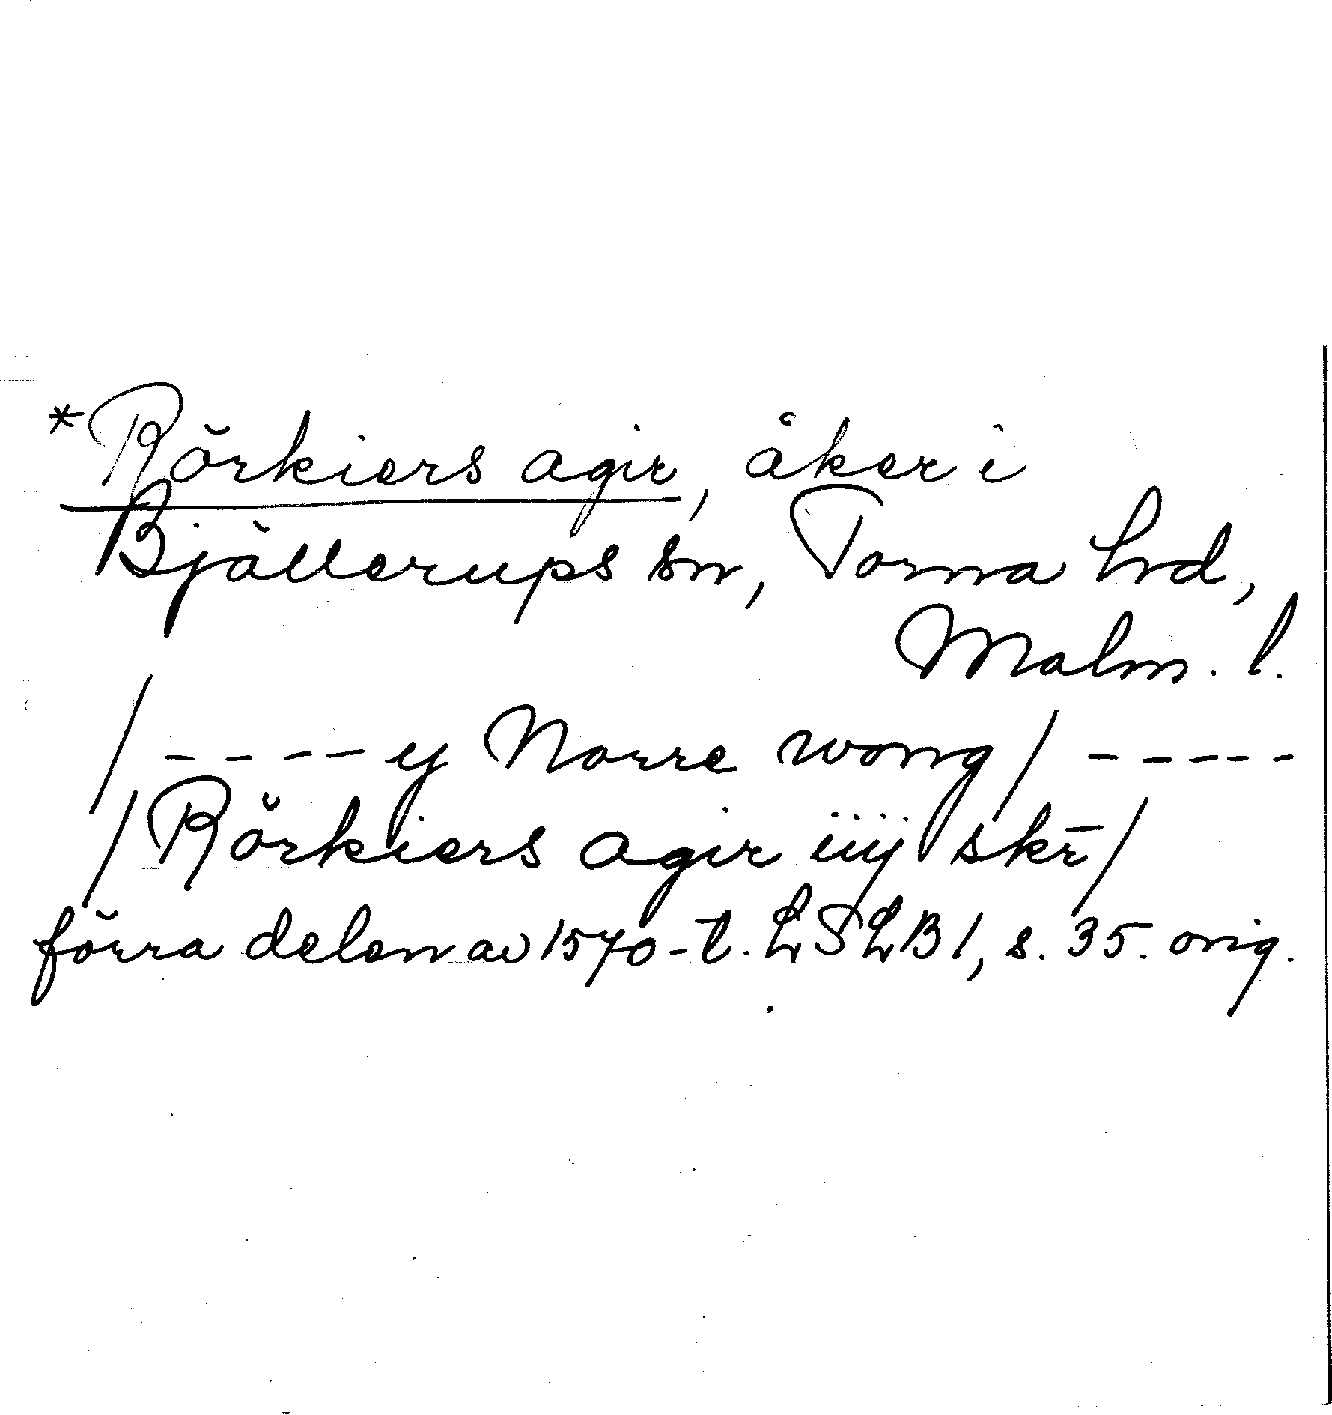 *Rörkiers agir, åker i
Bjällerups sn, Torna hrd,
Malm. l.
/ - - - - y Norre wong / - - - - -
/ Rörkiers agir iiij skr̄ /
förra delen av 1570-t. LSLB 1, s. 35. orig.